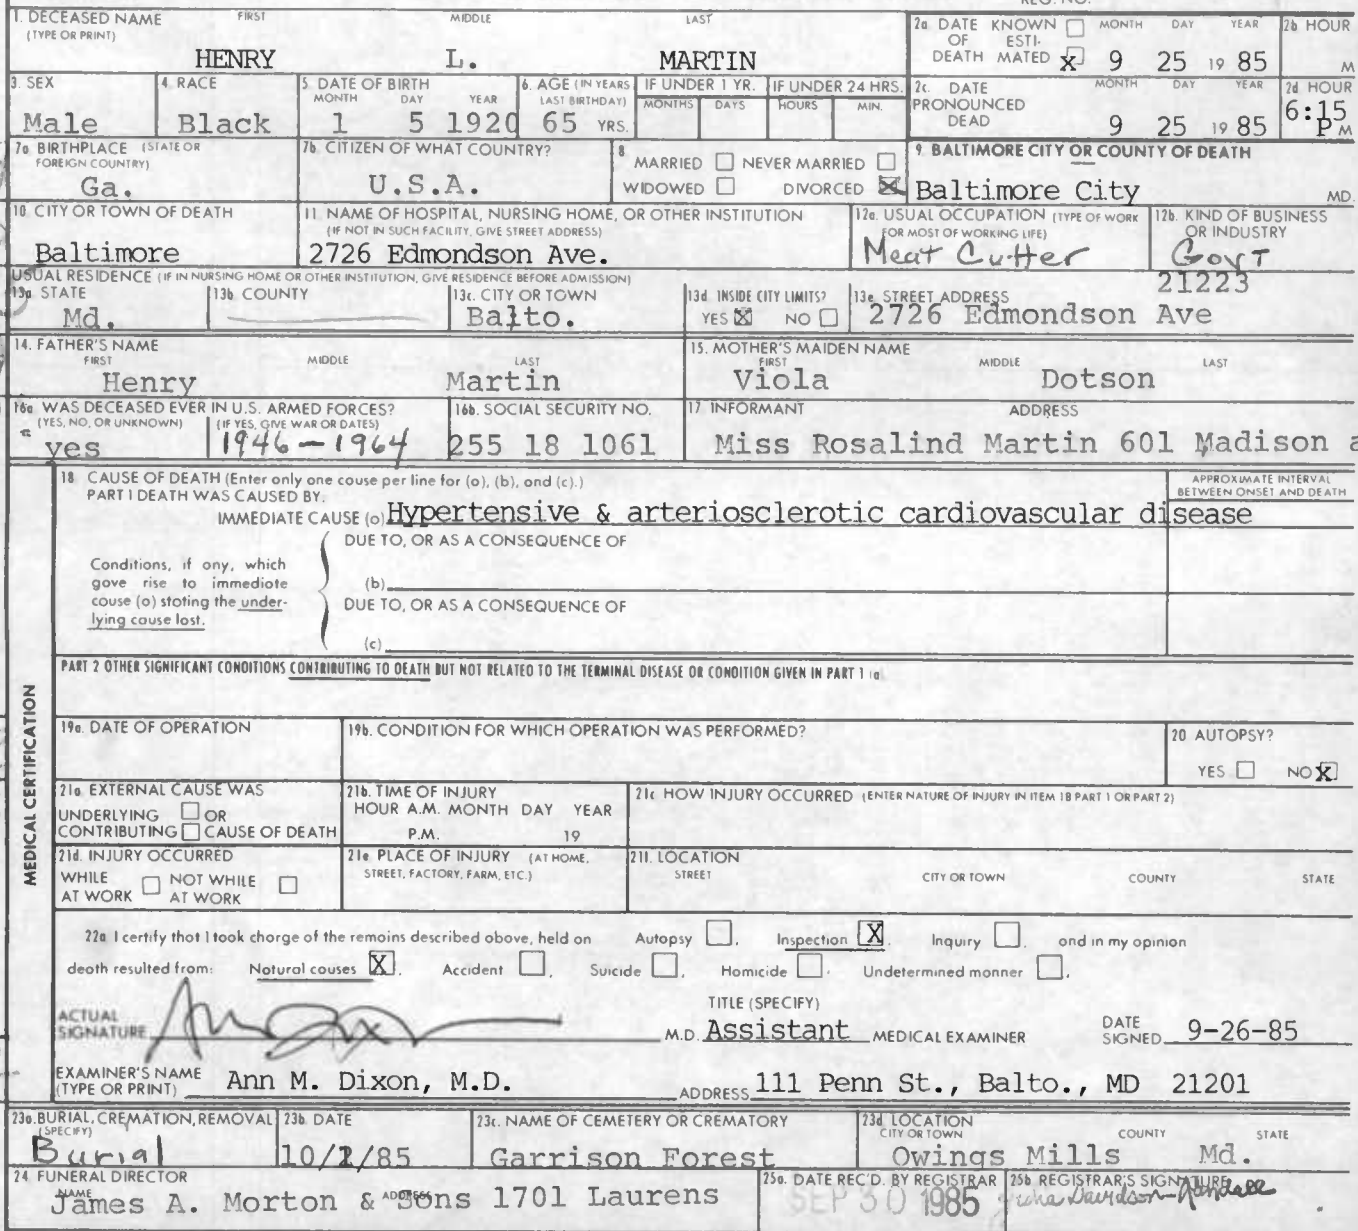 REG. NO.
1. DECEASED NAME FIRST MIDDLE LAST
(TYPE OR PRINT)
HENRY L. MARTIN
2a. DATE KNOWN MONTH DAY YEAR 2b HOUR
OF ESTI-
DEATH MATED X 9 25 19 85 M
3. SEX
Male
4. RACE
Black
5. DATE OF BIRTH
MONTH DAY YEAR
1 5 1920
6. AGE (IN YEARS
LAST BIRTHDAY)
65 YRS.
IF UNDER 1 YR.
MONTHS DAYS
IF UNDER 24 HRS.
HOURS MIN.
2c. DATE MONTH DAY YEAR 2d HOUR
PRONOUNCED
DEAD 9 25 19 85 6:15
P M
7a. BIRTHPLACE (STATE OR
FOREIGN COUNTRY)
Ga.
7b. CITIZEN OF WHAT COUNTRY?
U.S.A.
8
MARRIED NEVER MARRIED
WIDOWED DIVORCED X
9. BALTIMORE CITY OR COUNTY OF DEATH
Baltimore City MD.
10. CITY OR TOWN OF DEATH
Baltimore
11. NAME OF HOSPITAL, NURSING HOME, OR OTHER INSTITUTION
(IF NOT IN SUCH FACILITY, GIVE STREET ADDRESS)
2726 Edmondson Ave.
12a. USUAL OCCUPATION (TYPE OF WORK
FOR MOST OF WORKING LIFE)
Meat Cutter
12b. KIND OF BUSINESS
OR INDUSTRY
GovT
USUAL RESIDENCE (IF IN NURSING HOME OR OTHER INSTITUTION, GIVE RESIDENCE BEFORE ADMISSION)
13a. STATE
Md.
13b. COUNTY
13c. CITY OR TOWN
Balto.
13d. INSIDE CITY LIMITS?
YES X NO
21223
13e. STREET ADDRESS
2726 Edmondson Ave
14. FATHER'S NAME
FIRST MIDDLE LAST
Henry Martin
15. MOTHER'S MAIDEN NAME
FIRST MIDDLE LAST
Viola Dotson
16a. WAS DECEASED EVER IN U.S. ARMED FORCES?
(YES, NO, OR UNKNOWN) (IF YES, GIVE WAR OR DATES)
yes 1946 - 1964
16b. SOCIAL SECURITY NO.
255 18 1061
17. INFORMANT ADDRESS
Miss Rosalind Martin 601 Madison a
MEDICAL CERTIFICATION
18 CAUSE OF DEATH (Enter only one cause per line for (a), (b), and (c).)
PART I DEATH WAS CAUSED BY:
APPROXIMATE INTERVAL
BETWEEN ONSET AND DEATH
IMMEDIATE CAUSE (a) Hypertensive & arteriosclerotic cardiovascular disease
DUE TO, OR AS A CONSEQUENCE OF
Conditions, if any, which
gave rise to immediate
cause (a) stating the under-
lying cause last.
(b)
DUE TO, OR AS A CONSEQUENCE OF
(c)
PART 2 OTHER SIGNIFICANT CONDITIONS CONTRIBUTING TO DEATH BUT NOT RELATED TO THE TERMINAL DISEASE OR CONDITION GIVEN IN PART 1 (a)
19a. DATE OF OPERATION
19b. CONDITION FOR WHICH OPERATION WAS PERFORMED?
20 AUTOPSY?
YES NO X
21a. EXTERNAL CAUSE WAS
UNDERLYING OR
CONTRIBUTING CAUSE OF DEATH
21b. TIME OF INJURY
HOUR A.M. MONTH DAY YEAR
P.M. 19
21c HOW INJURY OCCURRED (ENTER NATURE OF INJURY IN ITEM 18 PART 1 OR PART 2)
21d. INJURY OCCURRED
WHILE NOT WHILE
AT WORK AT WORK
21e. PLACE OF INJURY (AT HOME,
STREET, FACTORY, FARM, ETC.)
21f. LOCATION
STREET CITY OR TOWN COUNTY STATE
22a I certify that I took charge of the remains described above, held on Autopsy , Inspection X , Inquiry , and in my opinion
death resulted from: Natural causes X , Accident , Suicide , Homicide , Undetermined manner ,
ACTUAL
SIGNATURE
M.D.
TITLE (SPECIFY)
Assistant MEDICAL EXAMINER
DATE
SIGNED 9-26-85
EXAMINER'S NAME
(TYPE OR PRINT) Ann M. Dixon, M.D.
ADDRESS 111 Penn St., Balto., MD 21201
23a. BURIAL, CREMATION, REMOVAL
(SPECIFY)
Burial
23b. DATE
10/1/85
23c. NAME OF CEMETERY OR CREMATORY
Garrison Forest
23d. LOCATION
CITY OR TOWN COUNTY STATE
Owings Mills Md.
24. FUNERAL DIRECTOR
NAME ADDRESS
James A. Morton & Sons 1701 Laurens
25a. DATE REC'D. BY REGISTRAR
SEP 30 1985
25b. REGISTRAR'S SIGNATURE
Davidson-Randall